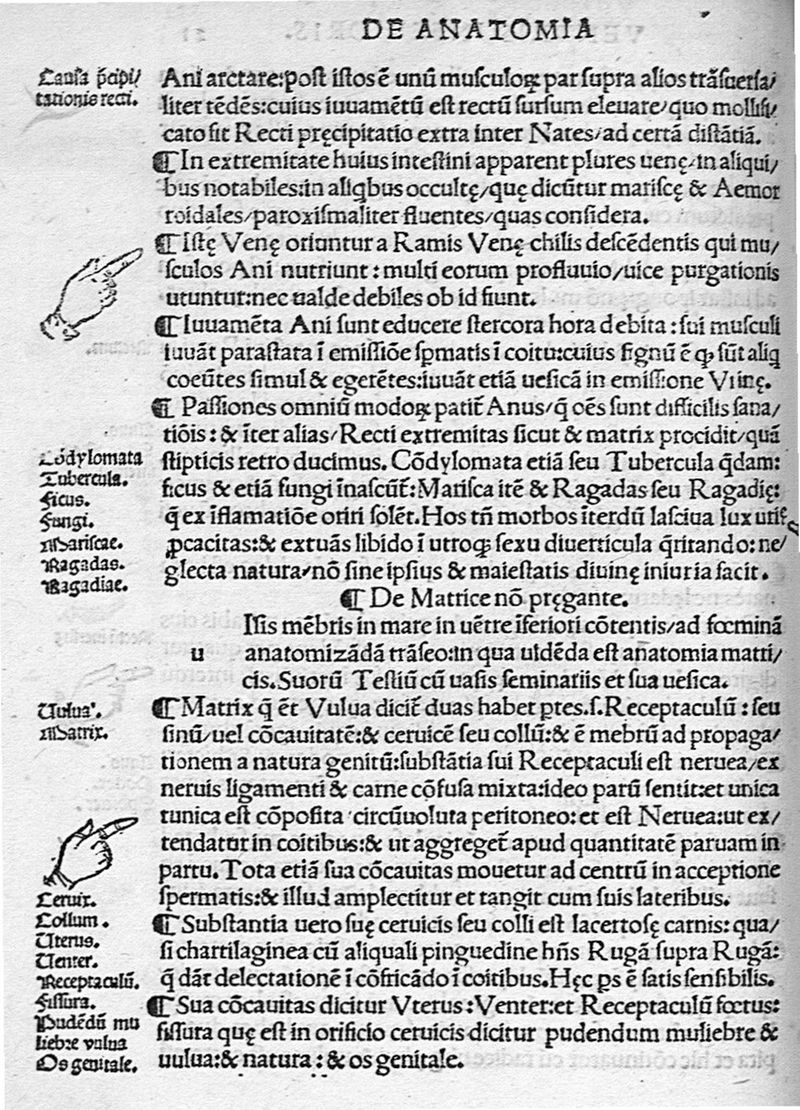 DE ANATOMIA
Cauſa p̄cipi/
tationis recti.
Ani arctare:poſt iſtos ē unū muſculoꝝ par ſupra alios trāſuerſa/
liter tēdēs:cuius iuuamētū eſt rectū ſurſum eleuare/quo molliﬁ/
cato ſit Recti pręcipitatio extra inter Nates/ad certā diſtātiā.
¶ In extremitate huius inteſtini apparent plures uenę/in aliqui/
bus notabiles:in aliqbus occultę/quę dicūtur mariſcę & Aemor
roidales/paroxiſmaliter fluentes/quas conſidera.
¶ Iſtę Venę oriuntur a Ramis Venę chilis deſcēdentis qui mu/
ſculos Ani nutriunt : multi eorum profluuio/uice purgationis
utuntur:nec ualde debiles ob id fiunt.
¶ Iuuamēta Ani ſunt educere ſtercora hora debita : ſui muſculi
iuuāt paraſtata ī emiſſiōe ſpmatis ī coitu:cuius ſignū ē ꝙ ſūt aliq
coeūtes ſimul & egerētes:iuuāt etiā ueſicā in emiſſione Vrinę.
¶ Paſſiones omniū modoꝝ patit̄ Anus/q̄ oēs ſunt difficilis ſana/
tiōis : & īter alias/Recti extremitas ſicut & matrix procidit/quā
ſtipticis retro ducimus. Cōdylomata etiā ſeu Tubercula q̄dam:
ficus & etiā fungi īnaſcūt̄:Mariſca itē & Ragadas ſeu Ragadię:
q̄ ex īflamatiōe oriri ſolēt. Hos tn̄ morbos īterdū laſciua lux urię
ꝓcacitas:& extuās libido ī utroqꝫ ſexu diuerticula q̄ritando: ne/
glecta natura/nō ſine ipſius & maieſtatis diuinę iniuria facit.
Cōdylomata
Tubercula.
Ficus.
Fungi.
Mariſcae.
Ragadas.
Ragadiae.
¶ De Matrice nō pręgante.
u Iſis mēbris in mare in uētre īferiori cōtentis/ad fœminā
anatomizādā trāſeo:in qua uidēda eſt anatomia matri/
cis. Suorū Teſtiū cū uaſis ſeminariis et ſua ueſica.
Vulua.
Matrix.
¶ Matrix q̄ ēt Vulua dicit̄ duas habet ptes.ſ.Receptaculū : ſeu
ſinū/uel cōcauitatē:& ceruicē ſeu collū:& ē mebrū ad propaga/
tionem a natura genitū:ſubſtātia ſui Receptaculi eſt neruea/ex
neruis ligamenti & carne cōfuſa mixta:ideo parū ſentit:et unica
tunica eſt cōpoſita circūuoluta peritoneo: et eſt Neruea:ut ex/
tendatur in coitibus:& ut aggreget̄ apud quantitatē paruam in
partu. Tota etiā ſua cōcauitas mouetur ad centrū in acceptione
ſpermatis:& illud amplectitur et tangit cum ſuis lateribus.
¶ Subſtantia uero ſuę ceruicis ſeu colli eſt lacertoſę carnis: qua/
ſi chartilaginea cū aliquali pinguedine hn̄s Rugā ſupra Rugā:
q̄ dāt delectationē ī cōfricādo ī coitibus. Hęc ps ē ſatis ſenſibilis.
¶ Sua cōcauitas dicitur Vterus : Venter:et Receptaculū fœtus:
fiſſura quę eſt in orificio ceruicis dicitur pudendum muliebre &
uulua:& natura : & os genitale.
Ceruix.
Collum.
Uterus.
Uenter.
Receptaculū.
Fiſſura.
Pudēdū mu
liebre vulua
Os genitale.